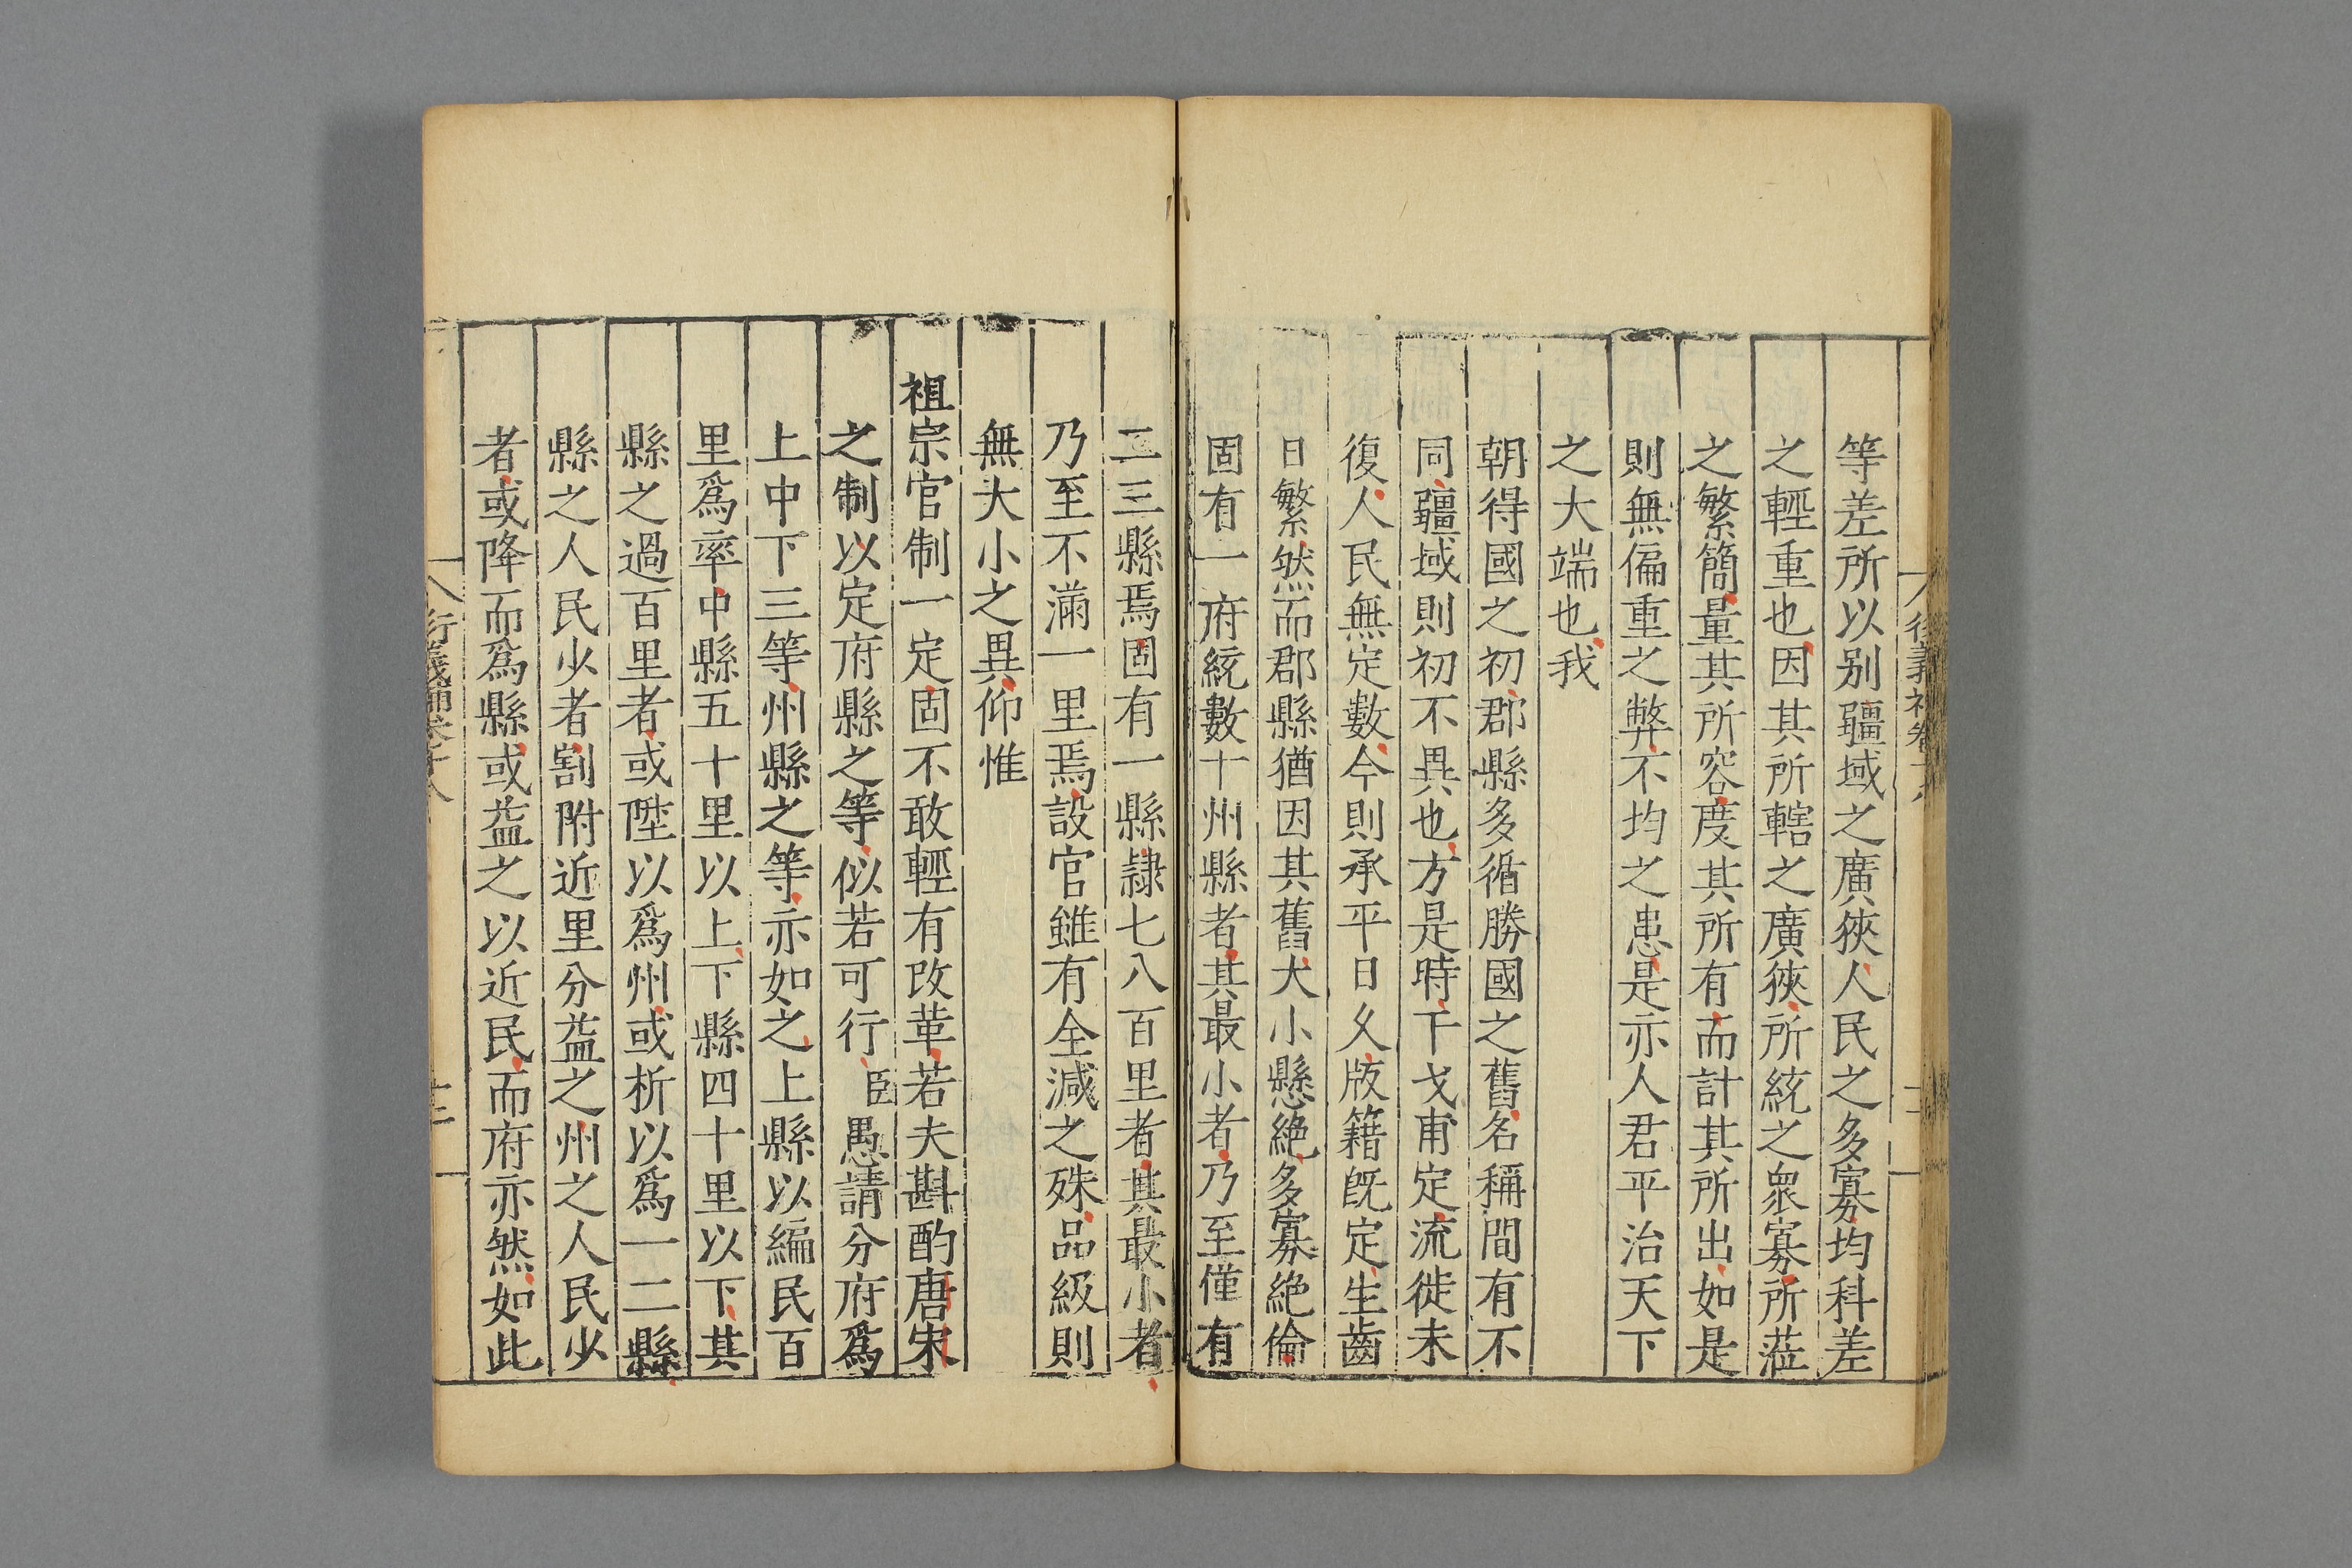 等差所以别疆域之廣狹人民之多寡均科差
之輕重也因其所轄之廣狹所統之衆寡所蒞
之繁簡量其所容度其所有而計其所出如是
則無偏重之弊不均之患是亦人君平治天下
之大端也我
朝得國之初郡縣多循勝國之舊名稱間有不
同疆域則初不異也方是時干戈甫定流徙未
復人民無定數今則承平日久版籍旣定生齒
日繁然而郡縣猶因其舊大小懸絶多寡絶倫
固有一府統數十州縣者其最小者乃至僅有
二三縣焉固有一縣隷七八百里者其最小者
乃至不滿一里焉設官雖有全減之殊品級則
無大小之異仰惟
祖宗官制一定固不敢輕有改革若夫斟酌唐宋
之制以定府縣之等似若可行臣愚請分府爲
上中下三等州縣之等亦如之上縣以編民百
里爲率中縣五十里以上下縣四十里以下其
縣之過百里者或陞以爲州或析以爲一二縣
縣之人民少者割附近里分益之州之人民少
者或降而爲縣或益之以近民而府亦然如此
衍義補卷十八